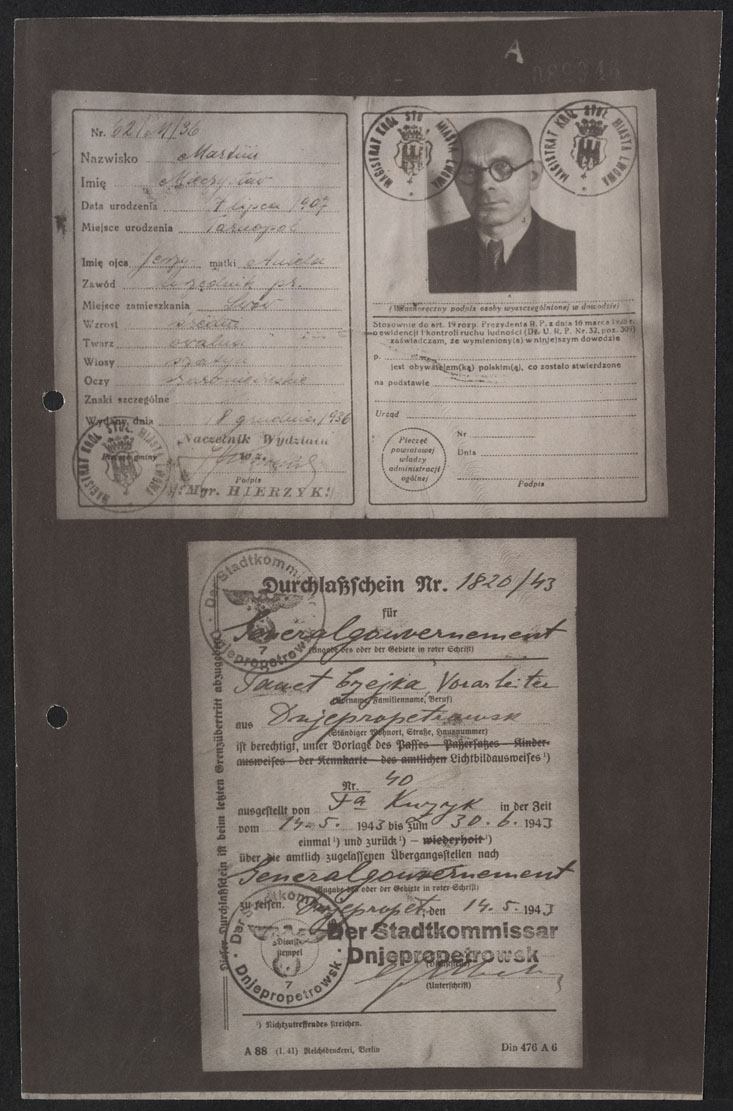 A
Nr. 62/M/36
Nazwisko Martini
Imię Mieczysław
Data urodzenia 7 lipca 1907
Miejsce urodzenia Tarnopol
Imię ojca Jerzy matki Aniela
Zawód urzędnik pr.
Miejsce zamieszkania Lwów
Wzrost średni
Twarz owalna
Włosy szatyn
Oczy
Znaki szczególne
Wydany dnia 18 grudnia 1936
Naczelnik Wydziału
Pieczęć gminy
w z.
Podpis
Mgr. HIERZYK
MAGISTRAT KRÓL. STOŁ. MIASTA LWOWA
MAGISTRAT KRÓL. STOŁ. MIASTA LWOWA
MAGISTRAT KRÓL. STOŁ. MIASTA LWOWA
(Własnoręczny podpis osoby wyszczególnionej w dowodzie)
Stosownie do art. 19 rozp. Prezydenta R. P. z dnia 16 marca 1928 r.
o ewidencji i kontroli ruchu ludności (Dz. U. R. P. Nr. 32, poz. 309)
zaświadczam, że wymieniony(a) w niniejszym dowodzie
p.
jest obywatelem(ką) polskim(ą), co zostało stwierdzone
na podstawie
Urząd
Pieczęć
powiatowej
władzy
administracji
ogólnej
Nr
Dnia
Podpis
Der Stadtkommissar
Dnjepropetrowsk
7
Durchlaßschein Nr. 1820/43
für
Generalgouvernement
(Angabe des oder der Gebiete in roter Schrift)
Czejka, Vorarbeiter
(Vorname, Familienname, Beruf)
aus Dnjepropetrowsk
(Ständiger Wohnort, Straße, Hausnummer)
ist berechtigt, unter Vorlage des Passes - Paßersatzes - Kinder-
ausweises - der Kennkarte - des amtlichen Lichtbildausweises ¹)
Nr. 40
ausgestellt von Fa Kuzyk in der Zeit
vom 14.5. 1943 bis zum 30.6. 1943
einmal ¹) und zurück ¹) - wiederholt ¹)
über die amtlich zugelassenen Übergangsstellen nach
Generalgouvernement
(Angabe des oder der Gebiete in roter Schrift)
zu reisen. Dnjepropet, den 14.5. 1943
Der Stadtkommissar
Dnjepropetrowsk
(Unterschrift)
Der Stadtkommissar
Dienst-
stempel
7
Dnjepropetrowsk
¹) Nichtzutreffendes streichen.
A 88 (1. 41) Reichsdruckerei, Berlin
Din 476 A 6
Dieser Durchlaßschein ist beim letzten Grenzübertritt abzugeben